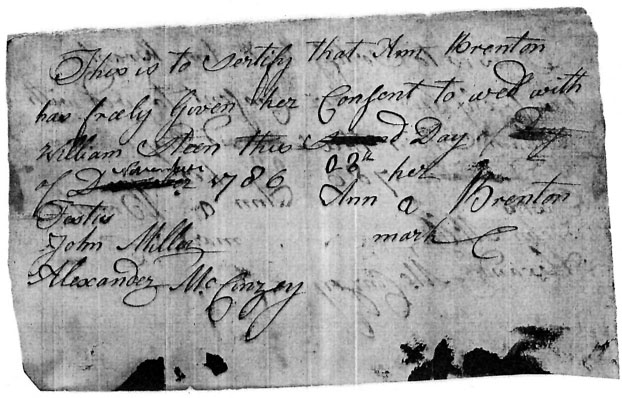 This is to sertify that Ann Brenton
has fraely Given her Consent to wed with
William Steen this Day of
of November 1786 22th her
Testis Ann a Brenton
John Miller mark
Alexander McConzey